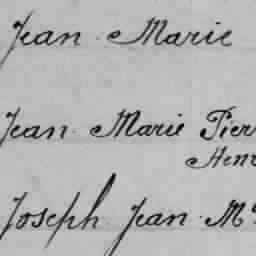 Jean Marie
Jean Marie Pier
Henr
Joseph Jean M